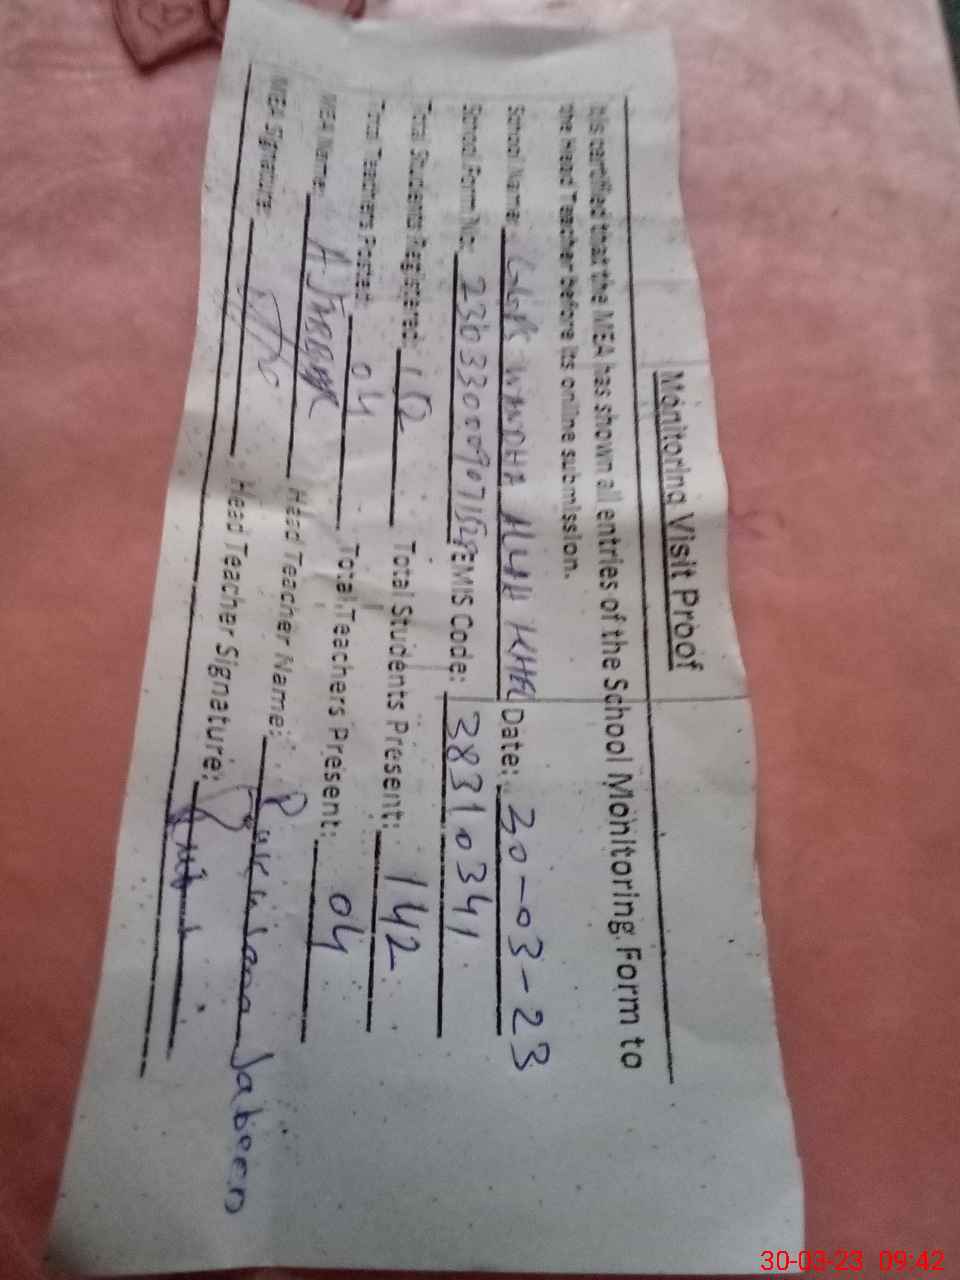 Monitoring Visit Proof
It is certified that the MEA has shown all entries of the School Monitoring Form to
the Head Teacher before its online submission.
School Name: Date: 30-03-23
School Form No: EMIS Code: 38310341
Total Students Registered: Total Students Present: 142
Total Teachers Posted: 04 Total Teachers Present: 04
MEA Name: Head Teacher Name: Rukhsana Jabeen
MEA Signature: Head Teacher Signature:
30-03-23 09:42